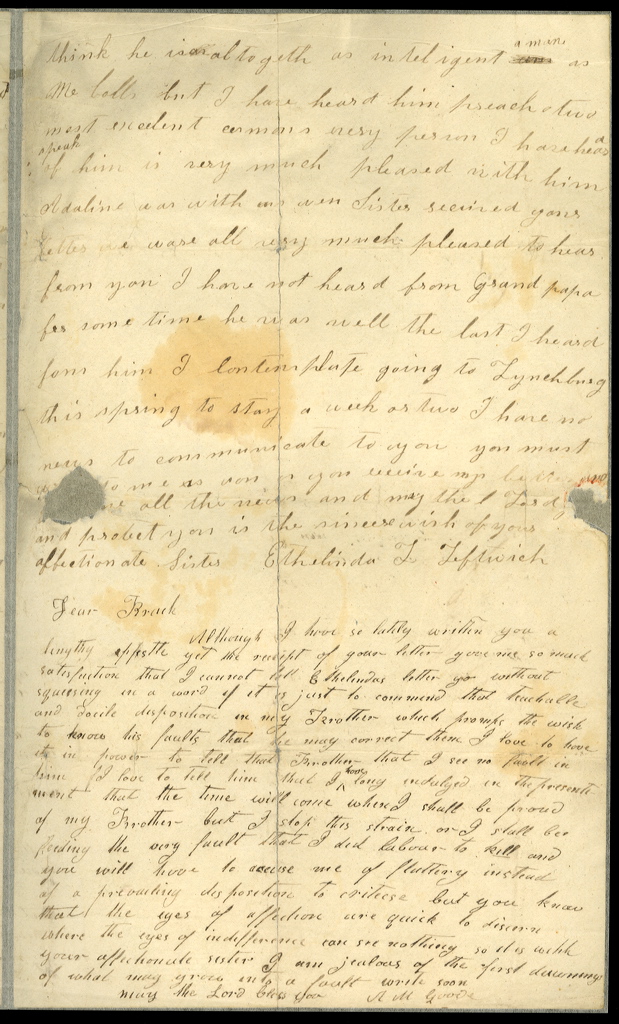 think he is altogeth as inteligent a man as
Mc Colls but I have heard him preach two
most excelent cermons evry person I have heard
speak
of him is very much pleased with him
Adaline was with us wen Sister received yours
letter we ware all very much pleased to hear
from you I have not heard from Grand papa
for some time he was well the last I heard
fom him I Contemplate going to Lynchburg
this spring to stay a week or two I have no
news to communicate to you you must
to me as son as you receive my
all the news and may the Lord
and protect you is the sincere wish of your
affectionate Sister Ethelinda T Leftwich
Dear Brack
Although I have so lately written you a
lengthy epistle yet the receipt of your letter gave me so much
satisfaction that I cannot let Ethelindas letter go without
squeesing in a word if it is just to commend that teachable
and docile disposition in my Brother which promps the wish
to know his faults that he may correct them I love to have
it in power to tell that Brother that I see no fault in
him I love to tell him that I have long indulged in the presenti
ment that the time will come when I shall be proud
of my Brother but I stop this strain or I shall bee
feeding the very fault that I did labour to kill and
you will have to accuse me of flattery instead
of a prevailing disposition to critiese but you know
that the eyes of affection are quick to discern
where the eyes of indifference can see nothing so it is with
your affectionate sister I am jealous of the first dawnings
of what may grow into a fault write soon
may the Lord bless you A M Goode